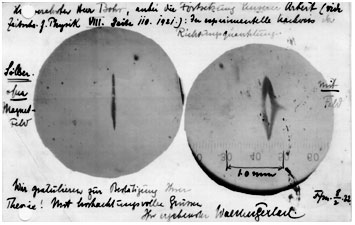 verehrter Herr Bohr, anbei die Fortsetzung unserer Arbeit (vide
Zeitschr. f. Physik VIII. Seite 110. 1921.): Der experimentelle Nachweis der
Richtungsquantelung.
Silber
ohne
Magnet-
feld
mit
Feld
30 50 60
1.0 mm
Wir gratulieren zur Bestätigung Ihrer
Theorie! Mit hochachtungsvollen Grüssen
Ihr ergebenster Walther Gerlach